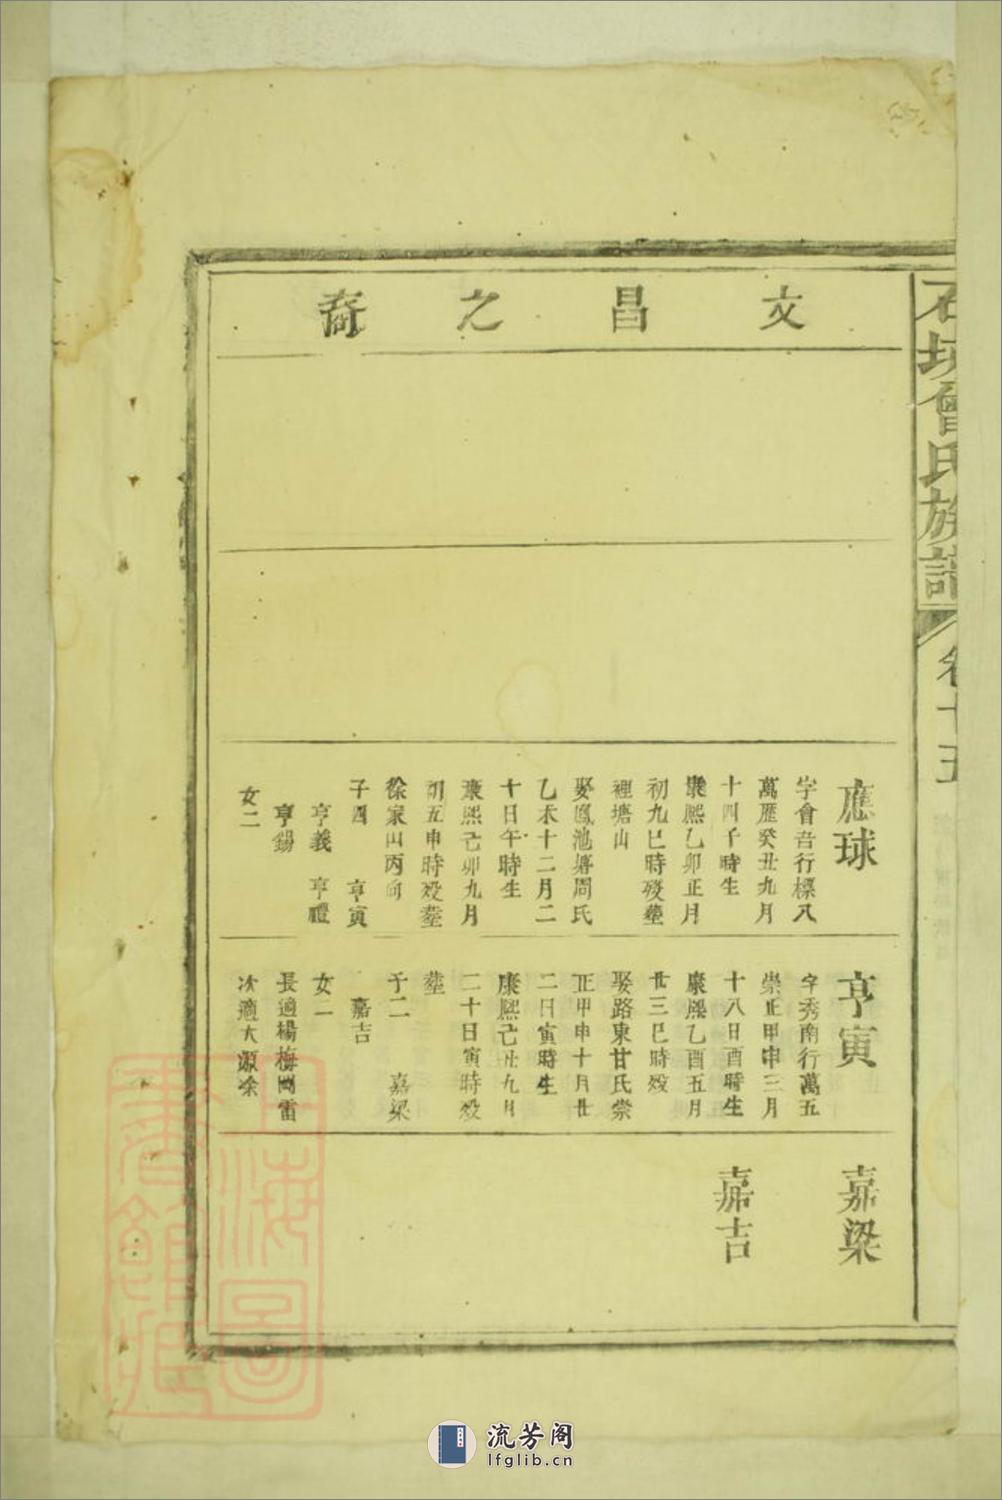 石坡曾氏族譜 卷十五
文昌之裔
應球
字會吾行標八
萬曆癸丑九月
十四子時生
康熙乙卯正月
初九巳時歿塟
裡塘山
娶鳳池塘周氏
乙未十二月二
十日午時生
康熙己卯九月
初五申時歿塟
徐家山丙向
子四 亨寅
亨義 亨禮
亨錫
女二
亨寅
字秀南行萬五
崇正甲申三月
十八日酉時生
康熙乙酉五月
廿三巳時歿
娶路東甘氏崇
正甲申十月廿
二日寅時生
康熙己丑九月
二十日寅時歿
塟
子二 嘉梁
嘉吉
女二
長適楊梅岡雷
次適大源涂
嘉梁
嘉吉
上海圖書館藏
流芳阁
lfglib.cn